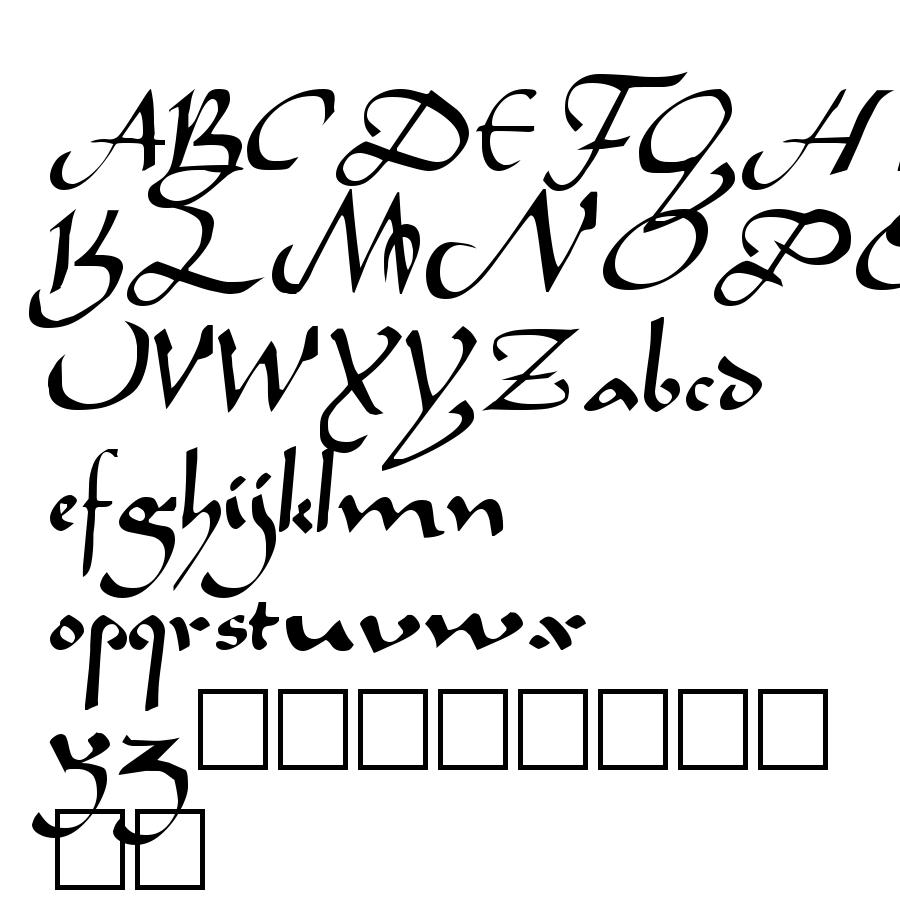 ABCDEFGH
KLMNOP
UVWXYZabcd
efghijklmn
opqrstuvwx
yz